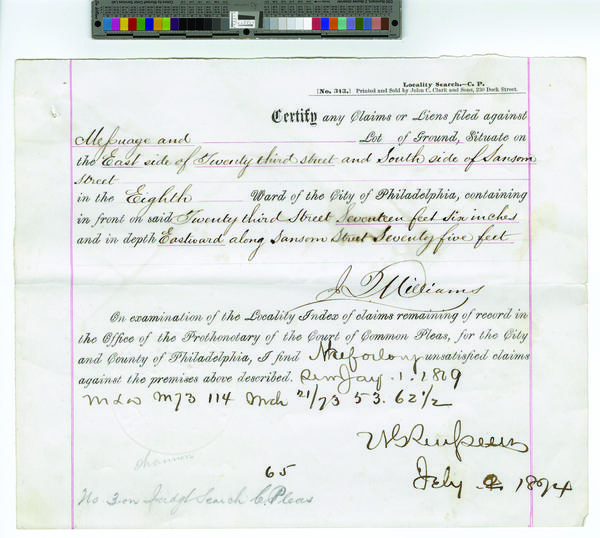 Locality Search.—C. P.
[No. 343.] Printed and Sold by John C. Clark and Sons, 230 Dock Street.
Certify any Claims or Liens filed against
Messuage and Lot of Ground, Situate on
the East side of Twenty third street and South side of Sansom
Street
in the Eighth Ward of the City of Philadelphia, containing
in front on said Twenty third Street Seventeen feet six inches
and in depth Eastward along Sansom Street Seventy five feet
J Williams
On examination of the Locality Index of claims remaining of record in
the Office of the Prothonotary of the Court of Common Pleas, for the City
and County of Philadelphia, I find unsatisfied claims
against the premises above described. Jany. 1. 1869
M 73 114 Mch 21/73 53. 62 1/2
July 2 1874
65
No 3 on Judgt Search C. Pleas